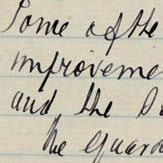 Some of the
improveme
and the D
the Guard